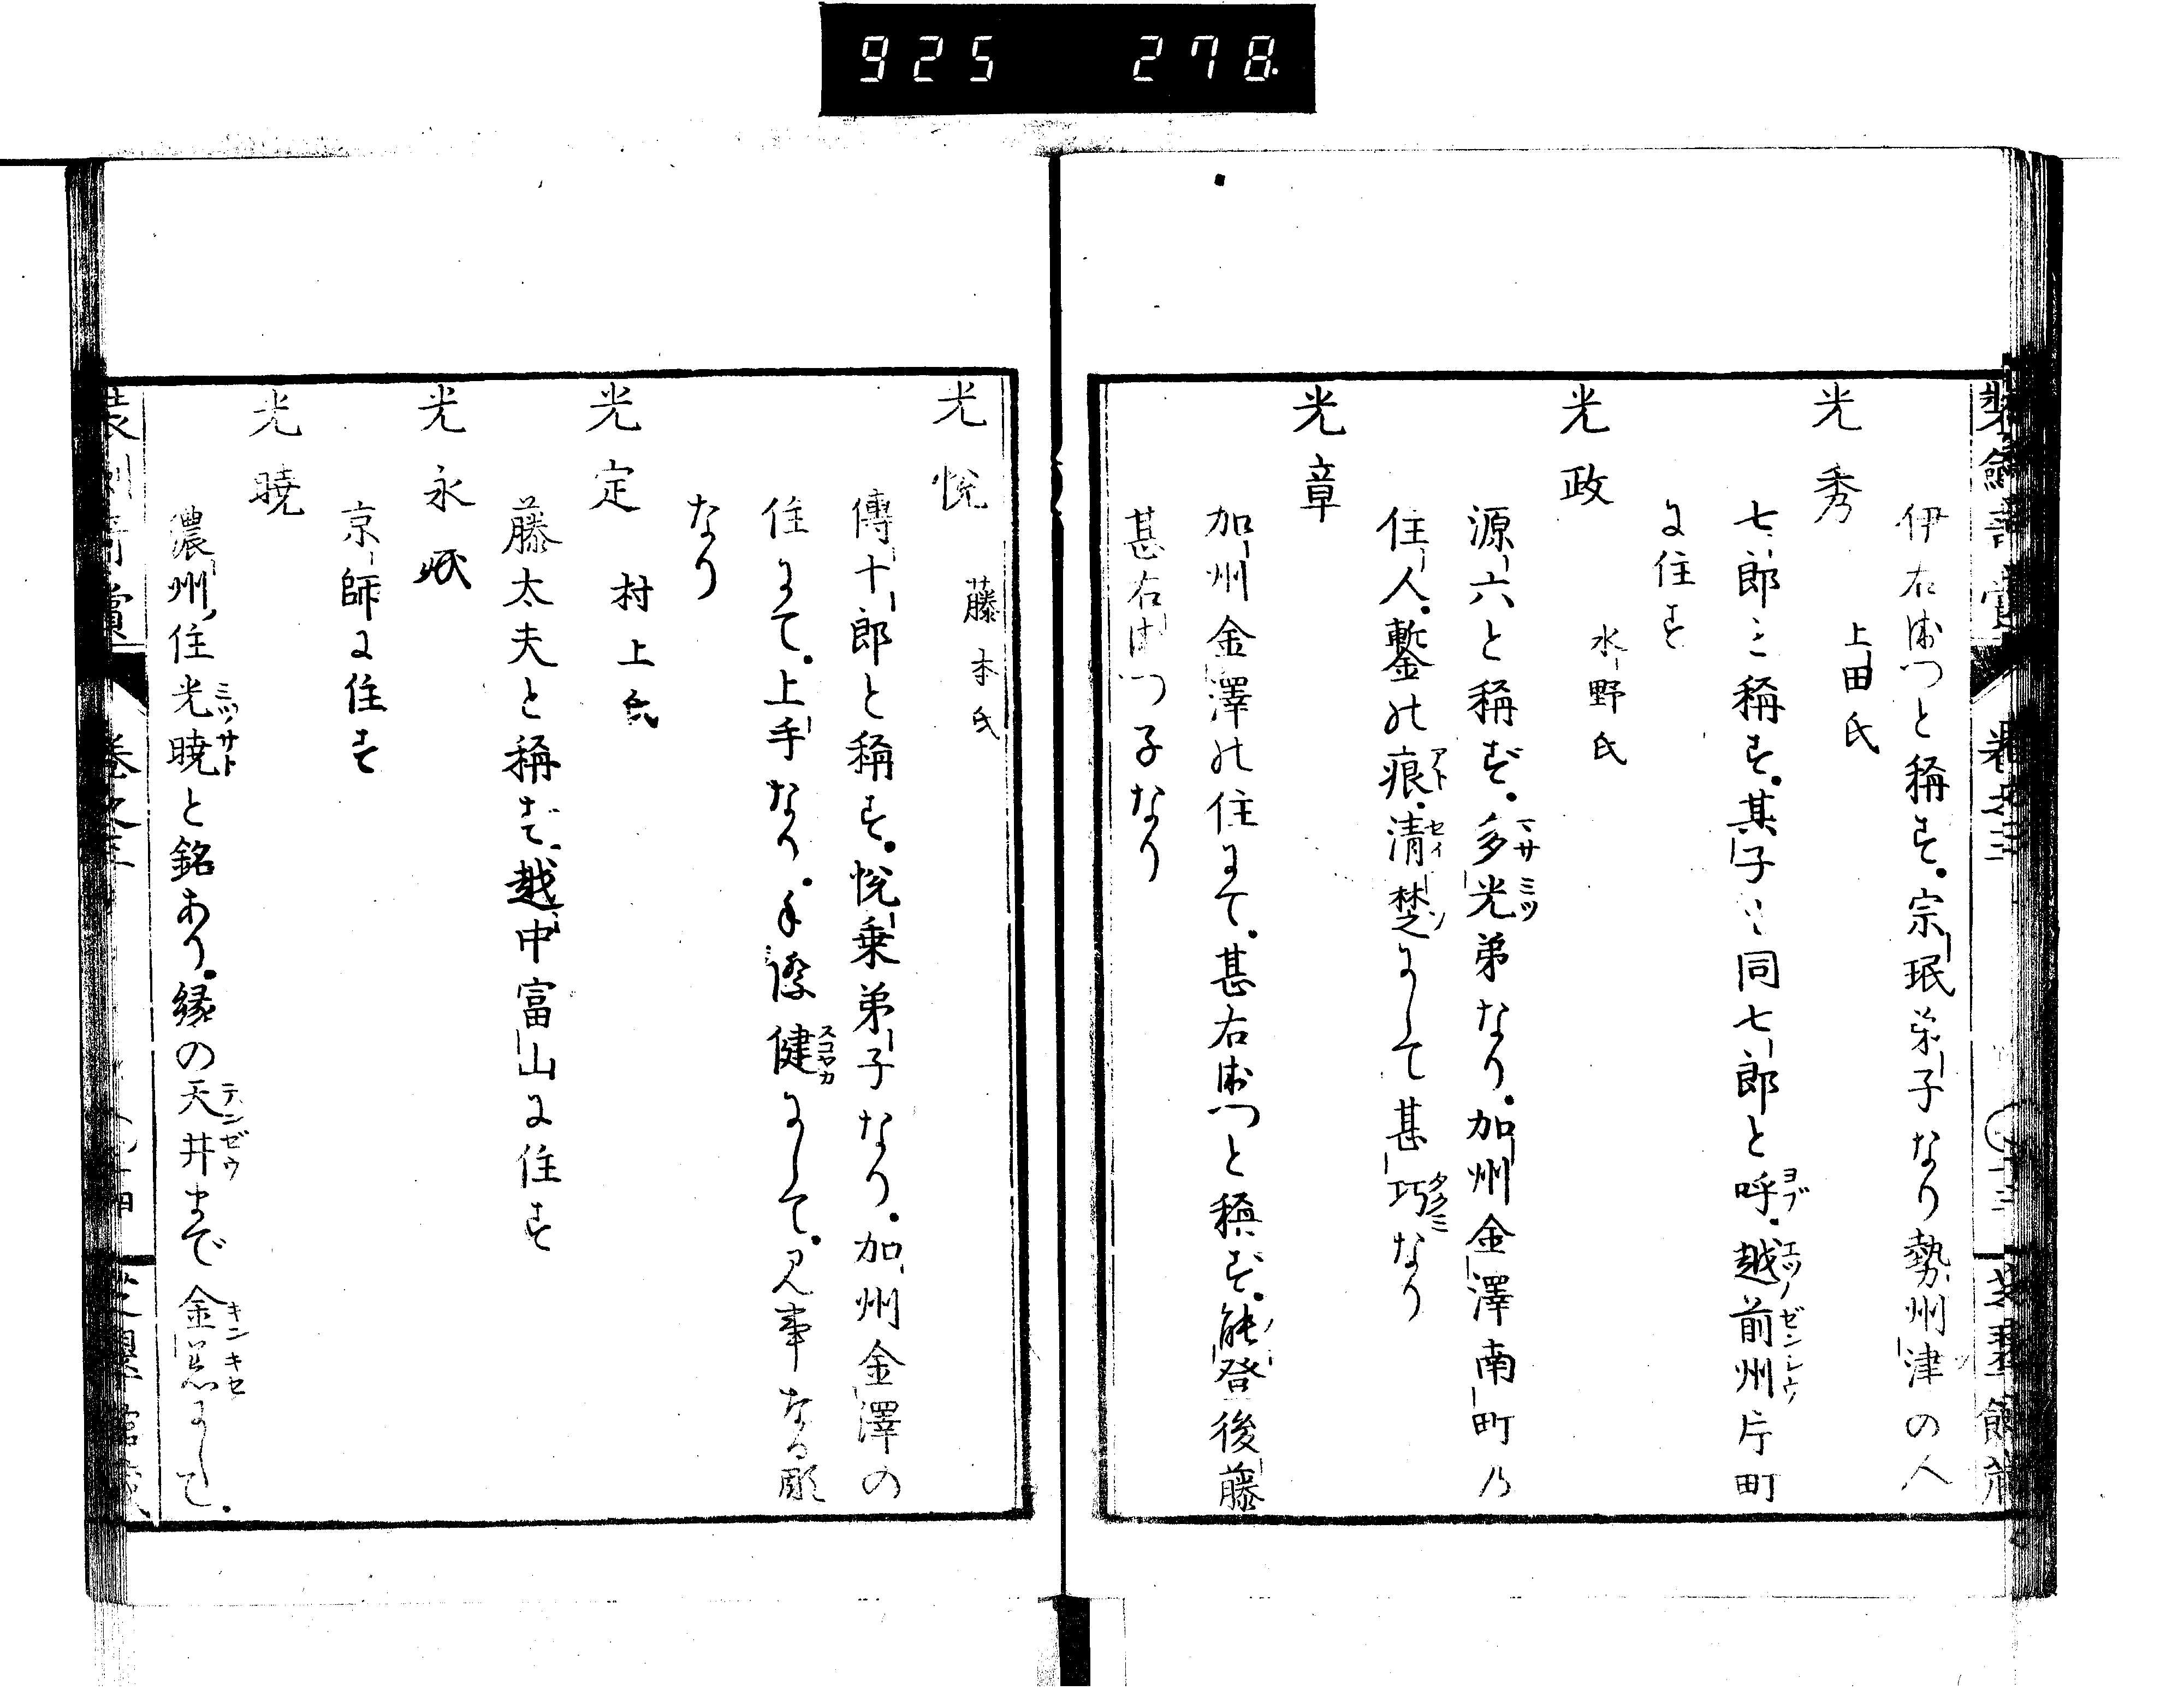 925 278
伊右衛門と稱す。宗珉弟子なり勢州津の人
光秀 上田氏
七郎と稱す。其子も同七郎と呼。越前州片町
に住す
光政 水野氏
源六と稱す。多光弟なり。加州金澤南町乃
住人。鏨の痕。清楚にして甚巧なり
光章
加州金澤の住にて。甚右衛門と稱す。能登後藤
甚右衛門子なり
光悦 藤本氏
傳十郎と稱す。悦乗弟子なり。加州金澤の
住にて。上手なり。手際健にして。見事なる彫
なり
光定 村上氏
藤太夫と稱す。越中富山に住す
光永
京師に住す
光曉
濃州住光曉と銘あり。縁の天井まで金にして。